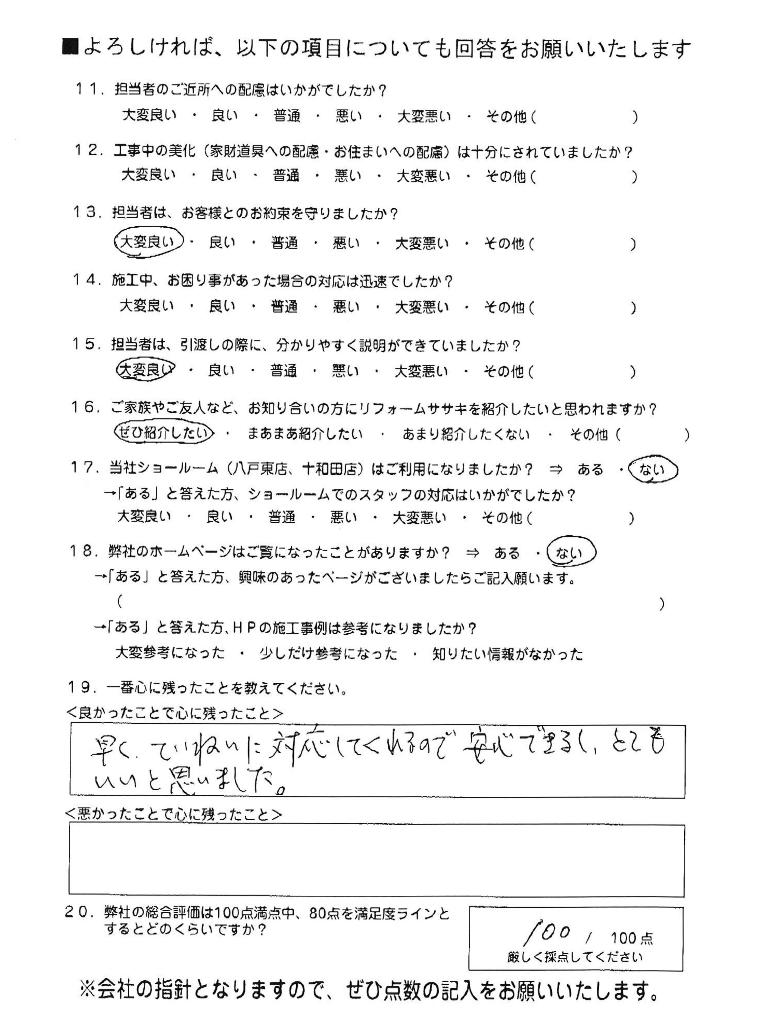 ■よろしければ、以下の項目についても回答をお願いいたします
11．担当者のご近所への配慮はいかがでしたか？
大変良い ・ 良い ・ 普通 ・ 悪い ・ 大変悪い ・ その他（　　　　　　）
12．工事中の美化（家財道具への配慮・お住まいへの配慮）は十分にされていましたか？
大変良い ・ 良い ・ 普通 ・ 悪い ・ 大変悪い ・ その他（　　　　　　）
13．担当者は、お客様とのお約束を守りましたか？
大変良い ・ 良い ・ 普通 ・ 悪い ・ 大変悪い ・ その他（　　　　　　）
14．施工中、お困り事があった場合の対応は迅速でしたか？
大変良い ・ 良い ・ 普通 ・ 悪い ・ 大変悪い ・ その他（　　　　　　）
15．担当者は、引渡しの際に、分かりやすく説明ができていましたか？
大変良い ・ 良い ・ 普通 ・ 悪い ・ 大変悪い ・ その他（　　　　　　）
16．ご家族やご友人など、お知り合いの方にリフォームササキを紹介したいと思われますか？
ぜひ紹介したい ・ まあまあ紹介したい ・ あまり紹介したくない ・ その他（　　　　）
17．当社ショールーム（八戸東店、十和田店）はご利用になりましたか？ ⇒ ある ・ ない
→「ある」と答えた方、ショールームでのスタッフの対応はいかがでしたか？
大変良い ・ 良い ・ 普通 ・ 悪い ・ 大変悪い ・ その他（　　　　　　）
18．弊社のホームページはご覧になったことがありますか？ ⇒ ある ・ ない
→「ある」と答えた方、興味のあったページがございましたらご記入願います。
（　　　　　　　　　　　　　　　　　　　　）
→「ある」と答えた方、HPの施工事例は参考になりましたか？
大変参考になった ・ 少しだけ参考になった ・ 知りたい情報がなかった
19．一番心に残ったことを教えてください。
＜良かったことで心に残ったこと＞
早く、ていねいに対応してくれるので安心できるし、とても
いいと思いました。
＜悪かったことで心に残ったこと＞
20．弊社の総合評価は100点満点中、80点を満足度ラインと
するとどのくらいですか？
100 / 100点
厳しく採点してください
※会社の指針となりますので、ぜひ点数の記入をお願いいたします。